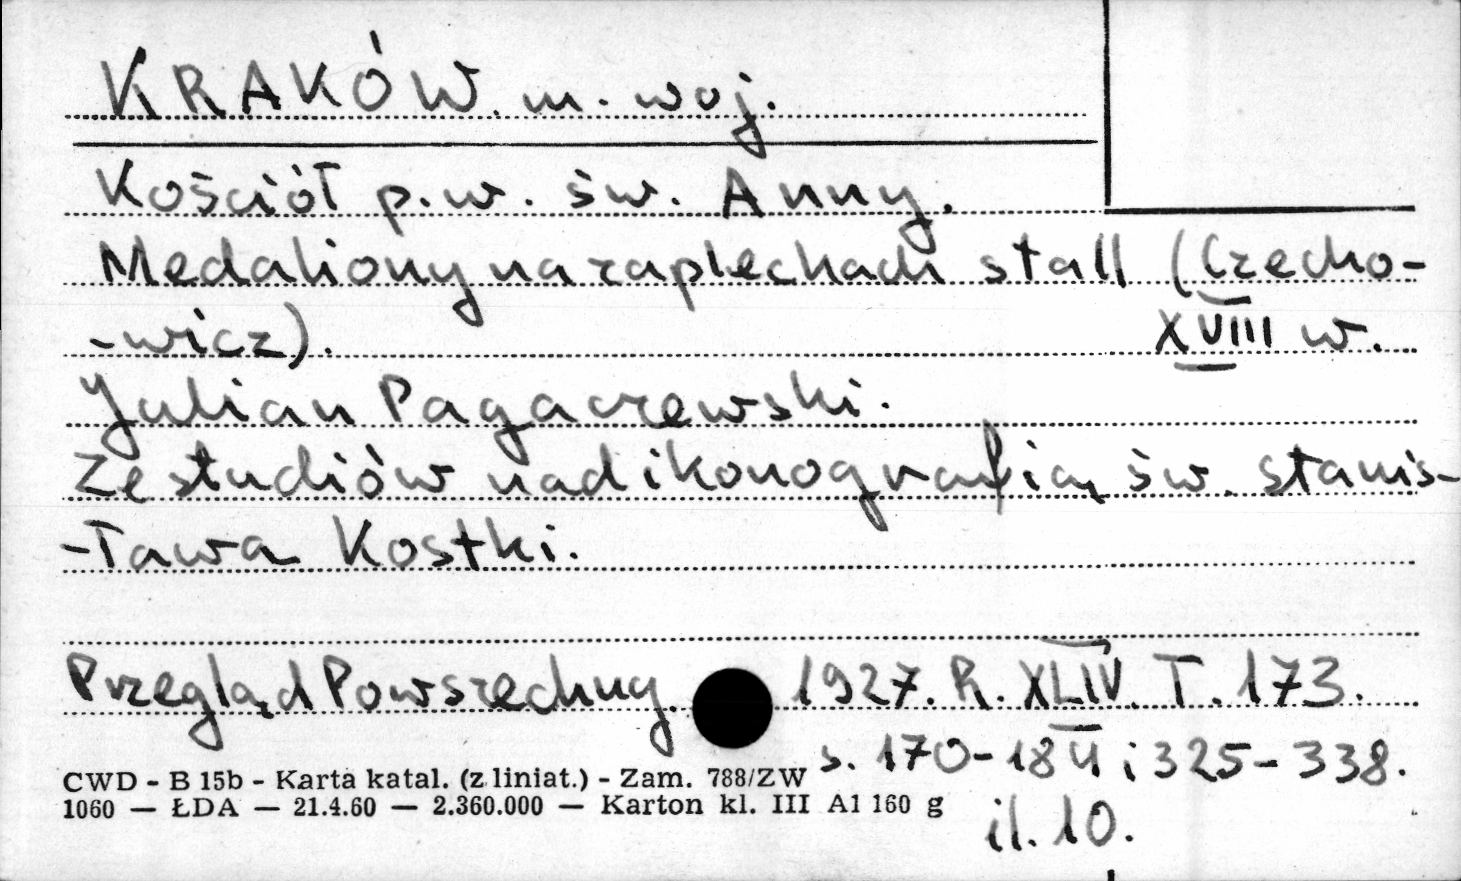 KRAKÓW. m. woj.
Kościół p.w. św. Anny.
Medaliony na zapleckach stall (Czecho-
-wicz). XVIII w.
Julian Pagaczewski.
Ze studiów nad ikonografią św. Stanis-
-ława Kostki.
Przegląd Powszechny. 1927. R. XLIV. T. 173.
s. 170-184 i 325-338.
il. 10.
CWD - B 15b - Karta katal. (z liniat.) - Zam. 788/ZW
1060 — ŁDA — 21.4.60 — 2.360.000 — Karton kl. III A1 160 g